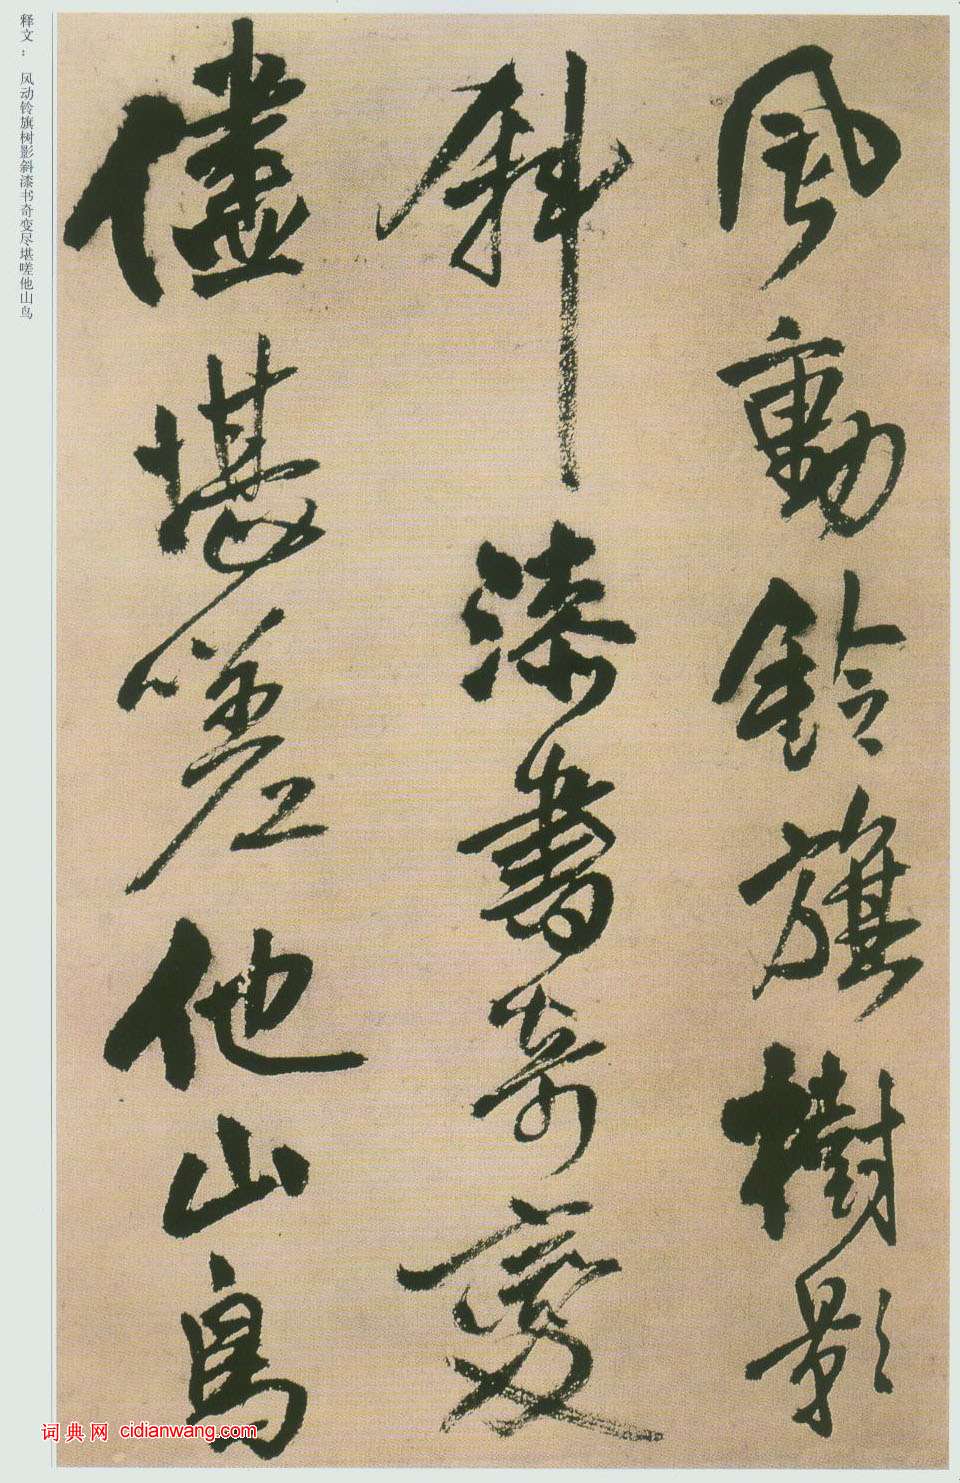 风动铃旗树影
斜漆书奇变
尽堪嗟他山鸟
释文：风动铃旗树影斜漆书奇变尽堪嗟他山鸟
词典网 cidianwang.com